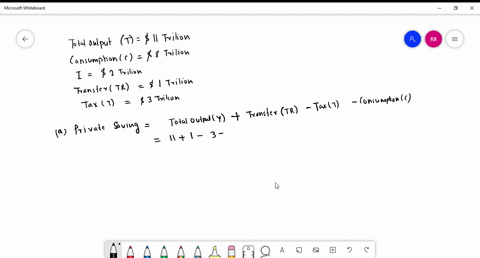 Microsoft Whiteboard
RR
Total Output (T) = $ 11 Trilion
Consumption (C) = $ 8 Trilion
I = $ 2 Trilion
Transfer (TR) = $ 1 Trilion
Tax (T) = $ 3 Trilion
(a) Private Saving = Total Output (Y) + Transfer (TR) - Tax (T) - Consumption (C)
= 11 + 1 - 3 -